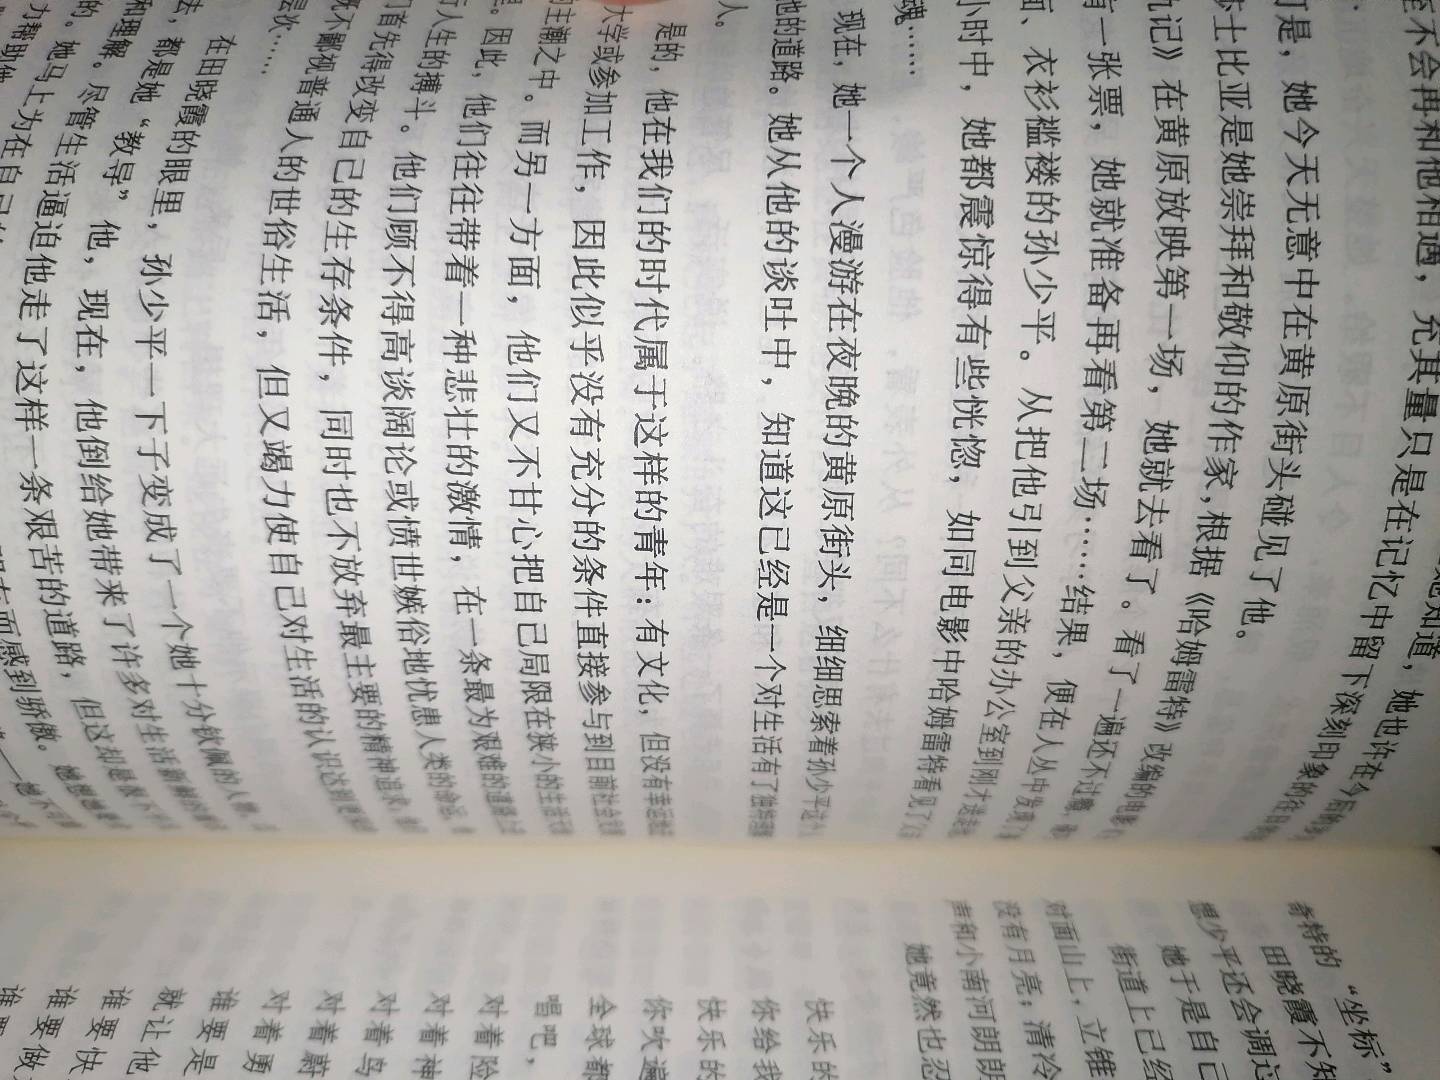 她知道，她也许在今后的
至不会再和他相遇，充其量只是在记忆中留下深刻印象的往日
可是，她今天无意中在黄原街头碰见了他。
莎士比亚是她崇拜和敬仰的作家，根据《哈姆雷特》改编的电影
仇记》在黄原放映第一场，她就去看了。看了一遍还不过瘾，
有一张票，她就准备再看第二场……结果，便在人丛中发现了
面、衣衫褴褛的孙少平。从把他引到父亲的办公室到刚才送走
小时中，她都震惊得有些恍惚，如同电影中哈姆雷特看见了父
魂……
现在，她一个人漫游在夜晚的黄原街头，细细思索着孙少平这个
他的道路。她从他的谈吐中，知道这已经是一个对生活有了独特理解
人。
是的，他在我们的时代属于这样的青年：有文化，但没有幸运地
大学或参加工作，因此似乎没有充分的条件直接参与到目前社会发
的主潮之中。而另一方面，他们又不甘心把自己局限在狭小的生活天
里。因此，他们往往带着一种悲壮的激情，在一条最为艰难的道路上
行人生的搏斗。他们顾不得高谈阔论或愤世嫉俗地忧患人类的命运。
们首先得改变自己的生存条件，同时也不放弃最主要的精神追求；
既不鄙视普通人的世俗生活，但又竭力使自己对生活的认识达到更
层次……
在田晓霞的眼里，孙少平一下子变成了一个她十分钦佩的人物。
去，都是她“教导”他，现在，他倒给她带来了许多对生活新鲜的看
和理解。尽管生活逼迫他走了这样一条艰苦的道路，但这却是很不
的。她马上为在自己的
而感到骄傲。她想她
力帮助他
奇特的“坐标”
田晓霞不知
想少平还会调过
她于是自己
街道上已经
对面山上，立锥
没有月亮；清冷
声和小南河朗朗
她竟然也忍
快乐的
你给我
快乐的
你吹遍
全球都
唱吧，
对着险
对着神
对着鸟
对着蔚
对着勇
谁要是
就让他
谁要快
谁要做
谁要